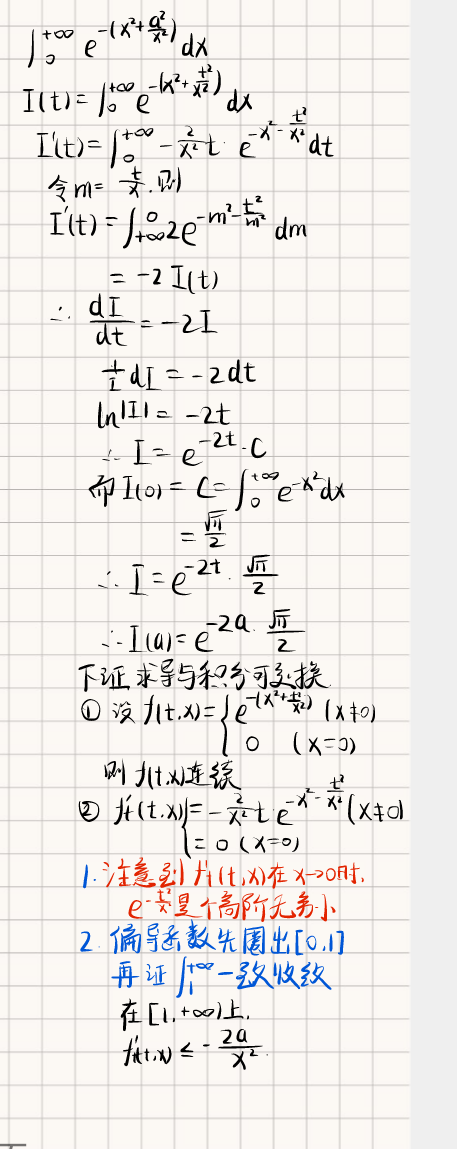 ∫₀^{+∞} e^{-(x²+a²/x²)} dx
I(t) = ∫₀^{+∞} e^{-(x²+t²/x²)} dx
I'(t) = ∫₀^{+∞} -2/x² t · e^{-x²-t²/x²} dt
令 m = t/x, 则
I'(t) = ∫_{+∞}^0 2e^{-m²-t²/m²} dm
= -2 I(t)
∴ dI/dt = -2I
1/I dI = -2dt
ln|I| = -2t
∴ I = e^{-2t}·C
而 I(0) = C = ∫₀^{+∞} e^{-x²} dx
= √π/2
∴ I = e^{-2t}·√π/2
∴ I(a) = e^{-2a}·√π/2
下证求导与积分可交换
① 设 f(t,x) = { e^{-(x²+t²/x²)} (x≠0)
0 (x=0)
则 f(t,x)连续
② f't(t,x) { = -2/x² t e^{-x²-t²/x²} (x≠0)
= 0 (x=0)
1. 注意到 f't(t,x)在 x→0时,
e^{-t²/x²}是个高阶无穷小
2. 偏导函数先圈出[0,1]
再证 ∫₁^{+∞} 一致收敛
在[1,+∞)上,
f't(t,x) ≤ -2a/x²